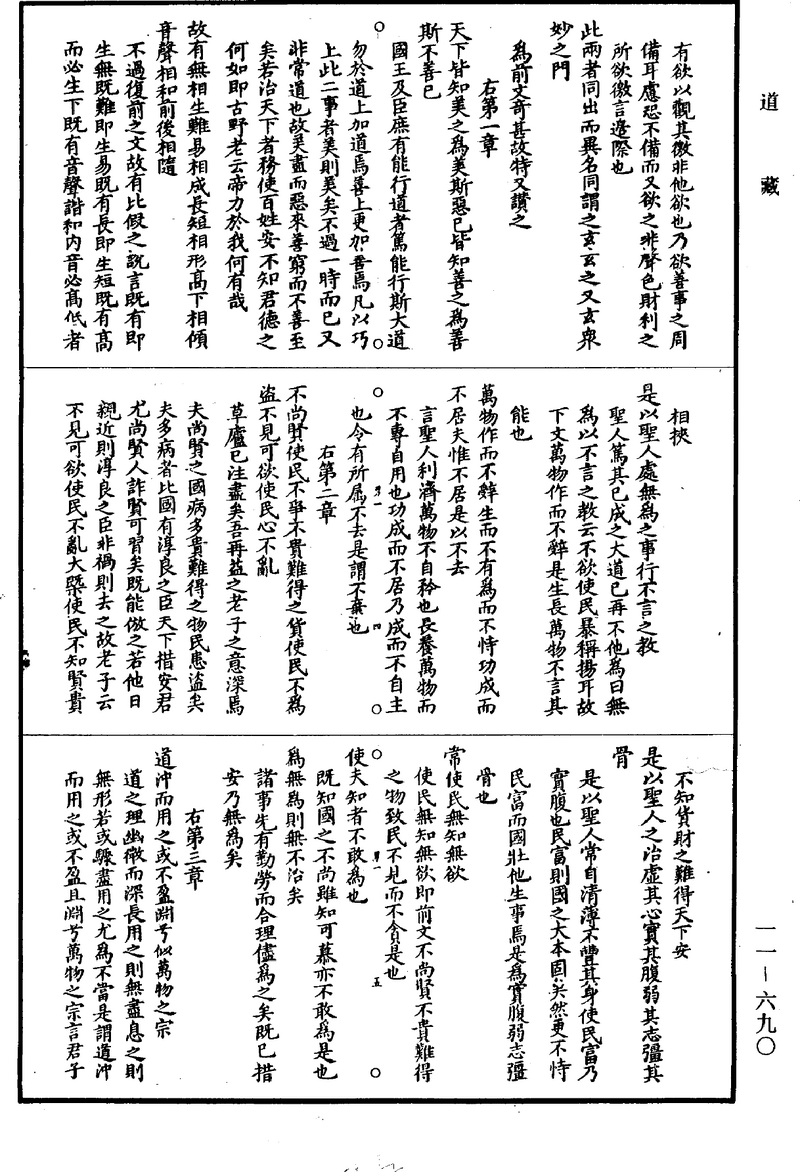 道藏
有欲以觀其徼非他欲也乃欲善事之周
備耳慮恐不備而又欲之非聲色財利之
所欲徼言邊際也
此兩者同出而異名同謂之玄玄之又玄衆
妙之門
為前文奇甚故特又讚之
右第一章
天下皆知美之為美斯惡已皆知善之為善
斯不善已
國王及臣庶有能行道者篤能行斯大道
勿於道上加道焉善上更加善焉凡以巧
上此二事者美則美矣不過一時而已又
非常道也故美盡而惡來善窮而不善至
矣若治天下者務使百姓安不知君德之
何如即古野老云帝力於我何有哉
故有無相生難易相成長短相形高下相傾
音聲相和前後相隨
不過復前之文故有比假之說言既有即
生無既難即生易既有長即生短既有高
而必生下既有音聲諧和內音必高低者
相挾
是以聖人處無為之事行不言之教
聖人篤其已成之大道已再不他為曰無
為以不言之教云不欲使民暴稱揚耳故
下文萬物作而不辭是生長萬物不言其
能也
萬物作而不辭生而不有為而不恃功成而
不居夫惟不居是以不去
言聖人利濟萬物不自矜也長養萬物而
不專自用也功成而不居乃成而不自主
也令有所屬不去是謂不棄也
右第二章
不尚賢使民不爭不貴難得之貨使民不為
盜不見可欲使民心不亂
草廬已注盡矣吾再益之老子之意深焉
夫尚賢之國病多貴難得之物民患盜矣
夫多病者比國有淳良之臣天下措安君
尤尚賢人詐賢可習矣既能倣之若他日
親近則淳良之臣非禍則去之故老子云
不見可欲使民不亂大槩使民不知賢貴
不知貨財之難得天下安
是以聖人之治虛其心實其腹弱其志彊其
骨
是以聖人常自清薄不豐其身使民富乃
實腹也民富則國之大本固矣然更不恃
民富而國壯他生事焉是為實腹弱志彊
骨也
常使民無知無欲
使民無知無欲即前文不尚賢不貴難得
之物致民不見而不貪是也
使夫知者不敢為也
既知國之不尚雖知可慕亦不敢為是也
為無為則無不治矣
諸事先有勤勞而合理儘為之矣既已措
安乃無為矣
右第三章
道沖而用之或不盈淵兮似萬物之宗
道之理幽微而深長用之則無盡息之則
無形若或驟盡用之尤為不當是謂道沖
而用之或不盈且淵兮萬物之宗言君子
一一—六九〇